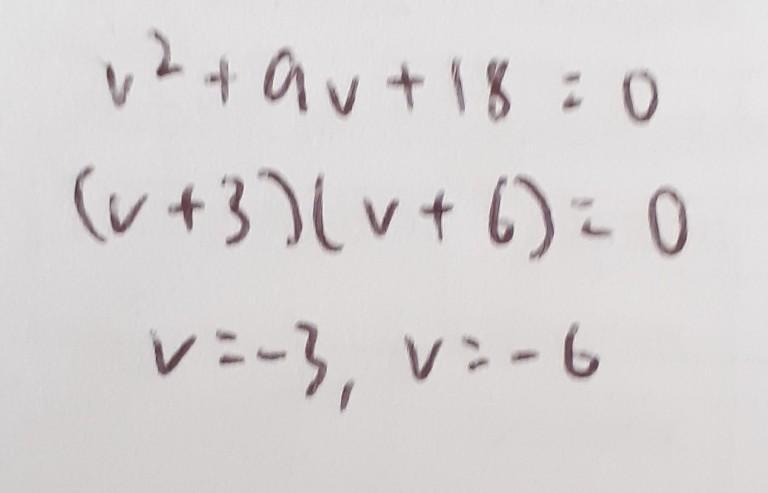 v² + 9v + 18 = 0
(v + 3)(v + 6) = 0
v = -3, v = -6